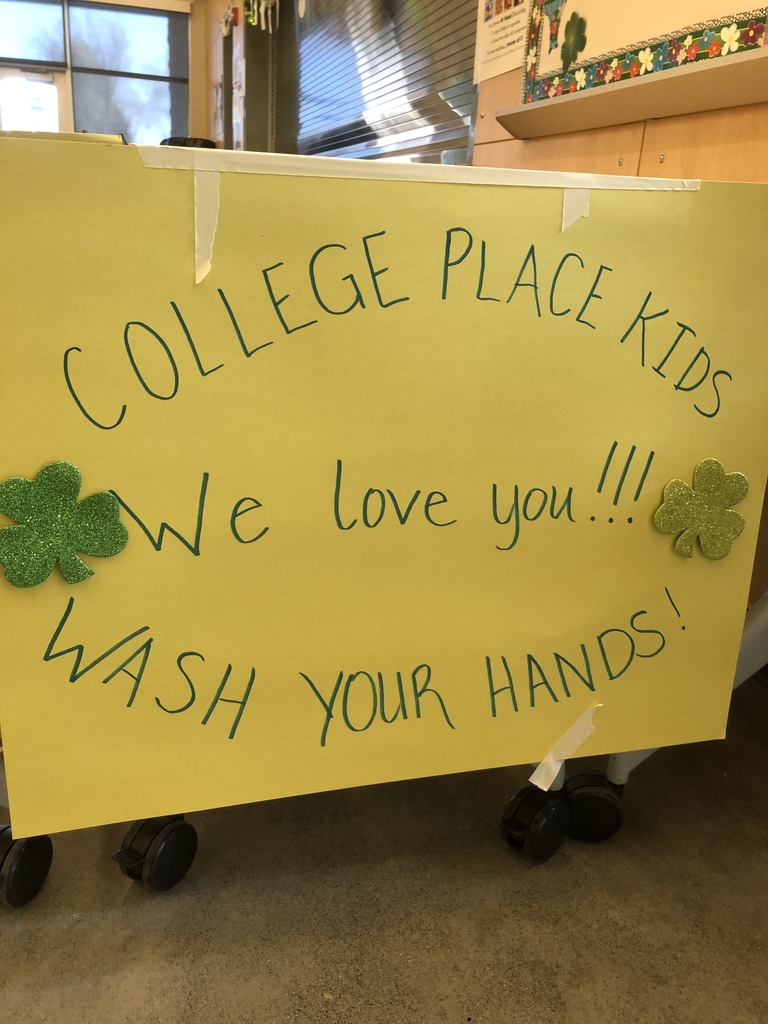 COLLEGE PLACE KIDS
We love you!!!
WASH YOUR HANDS!